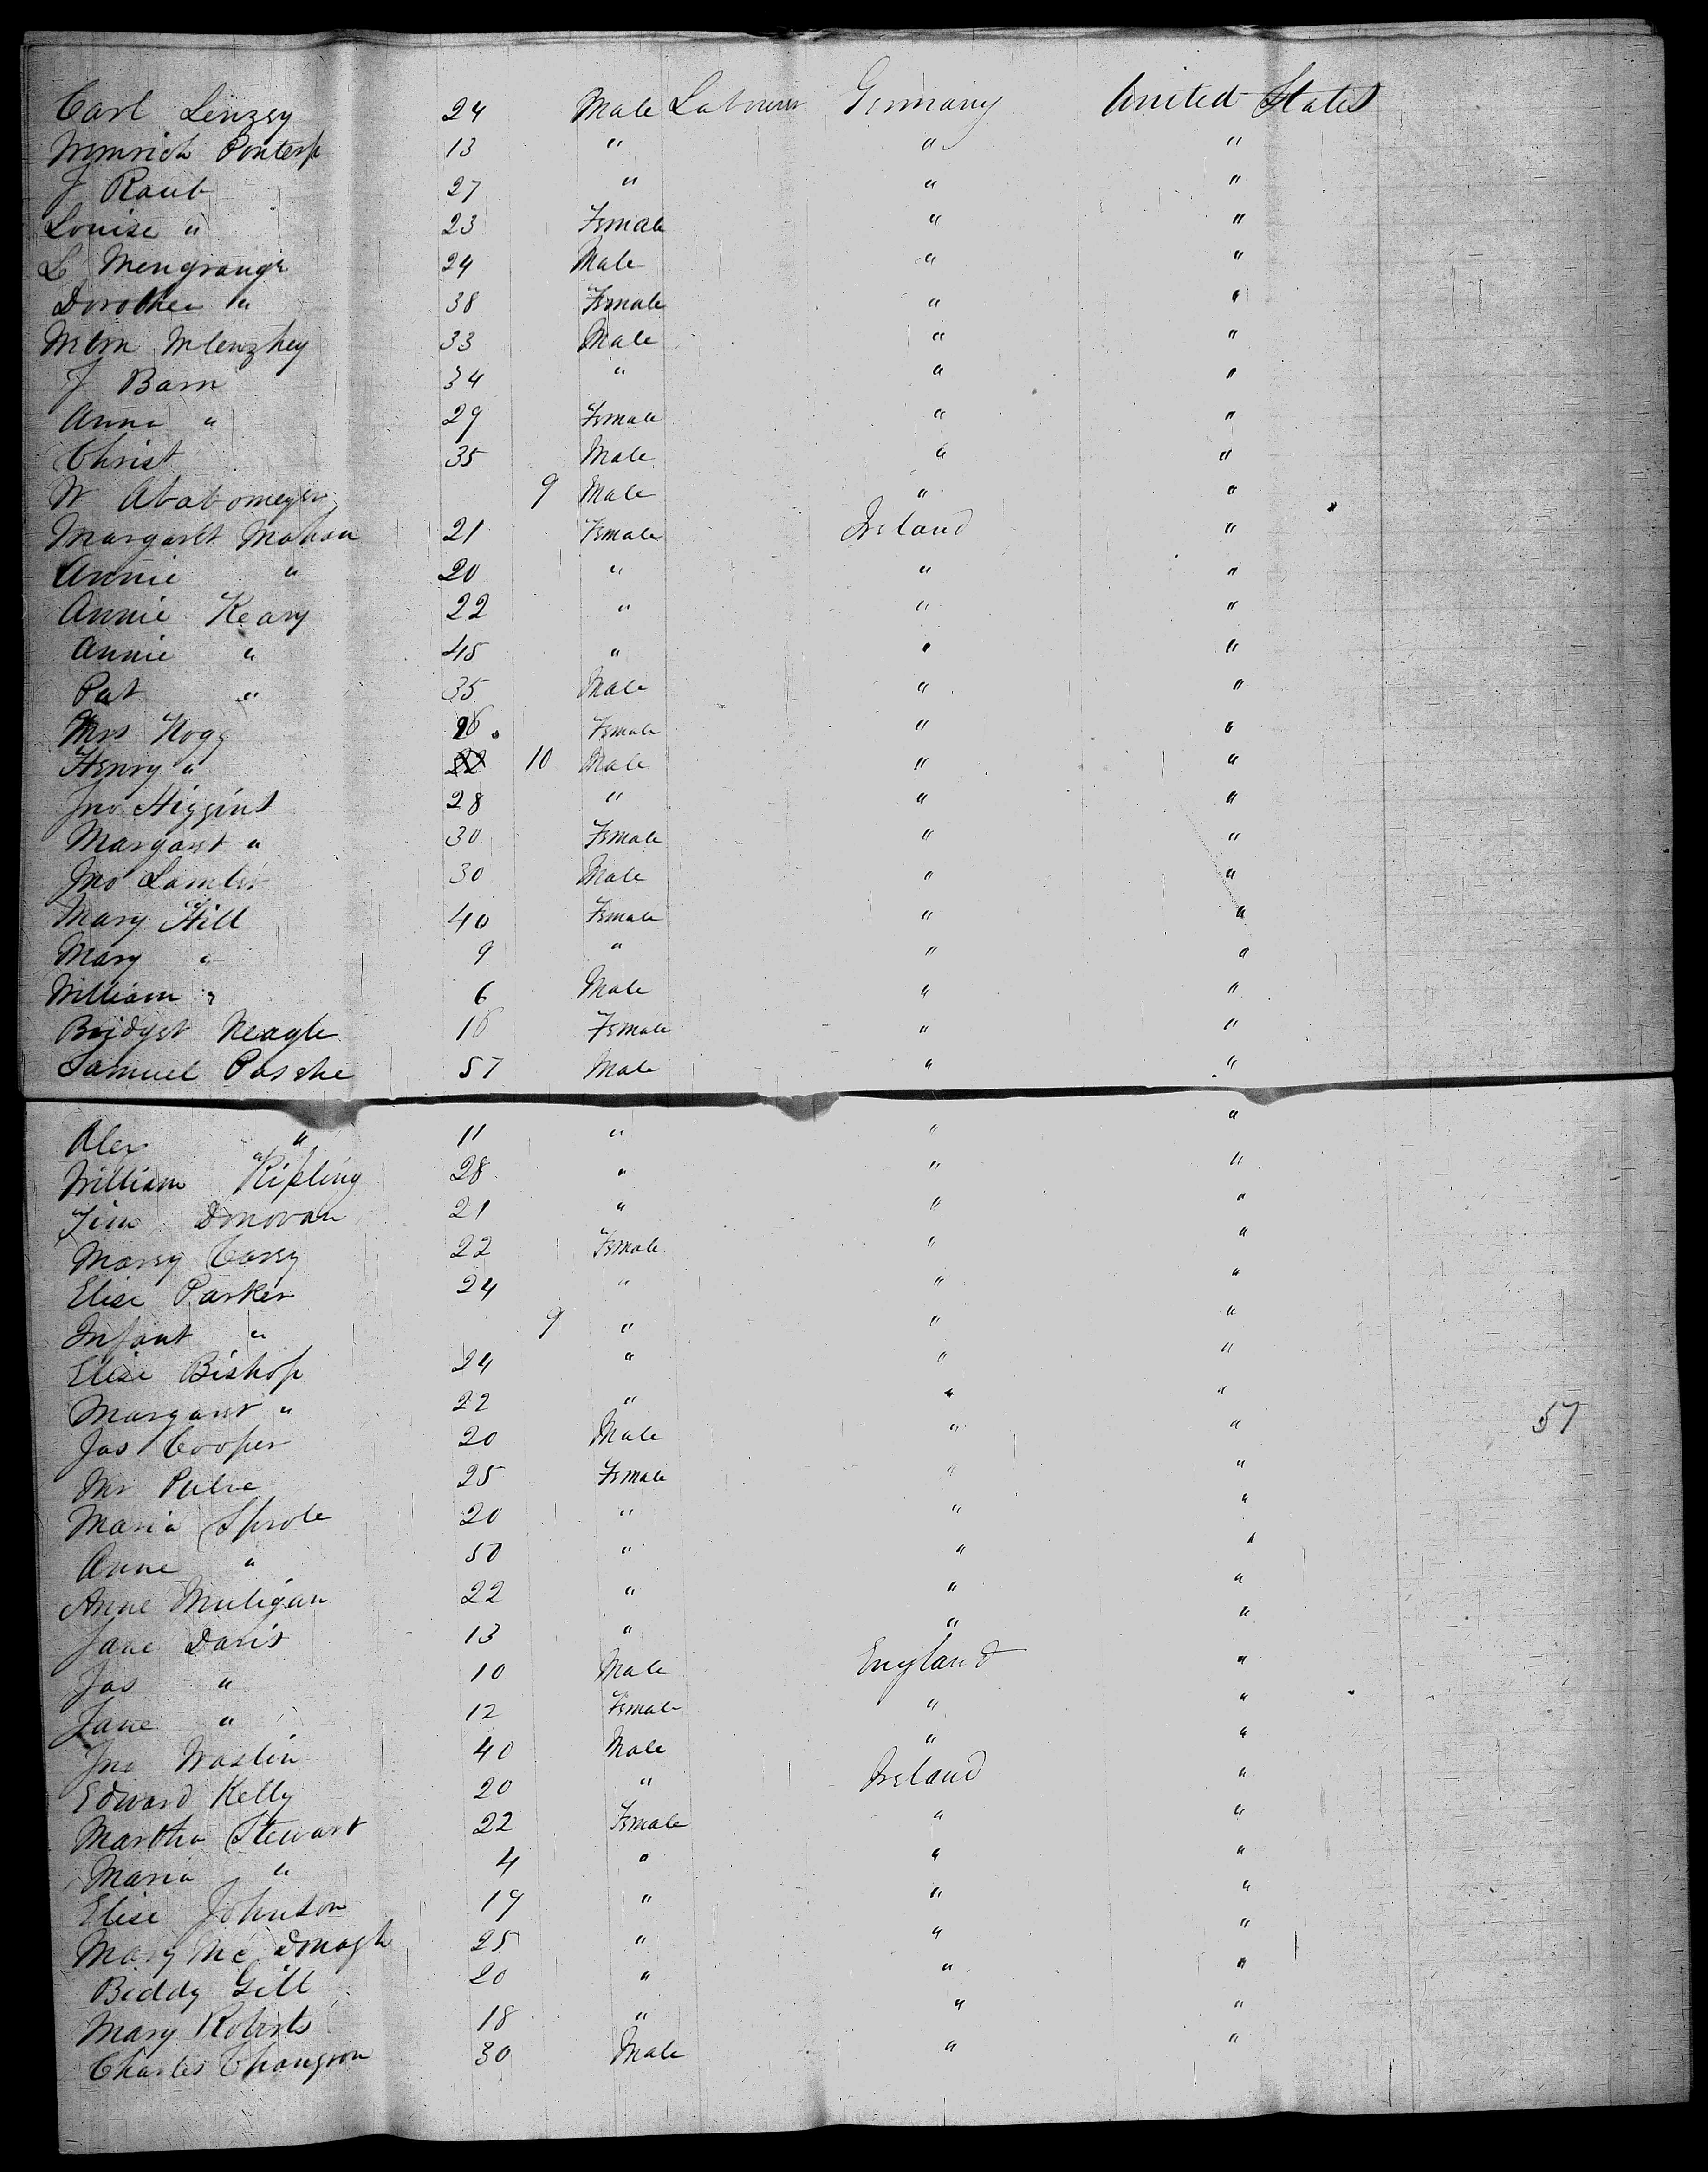 Carl Linzey 24 Male Labourer Germany United States
Heinrich 13 " " "
J Raub 27 " " "
Louise " 23 Female " "
L Mengrange 24 Male " "
Dorothee " 38 Female " "
33 Male " "
J Barn 34 " " "
Anna " 29 Female " "
Christ 35 Male " "
W 9 Male " "
Margaret Mahon 21 Female Ireland "
Annie " 20 " " "
Annie Keary 22 " " "
Annie " 45 " " "
Pat " 35 Male " "
Mrs Hogg 26 Female " "
Henry " 22 10 Male " "
Jno Higgins 28 " " "
Margaret " 30 Female " "
Jno Lambir 30 Male " "
Mary Hill 40 Female " "
Mary " 9 " " "
William " 6 Male " "
Bridget Neagle 16 Female " "
Samuel Paske 57 Male " "
Alex " 11 " " "
William Kipling 28 " " "
Tim Donovan 21 " " "
Marry Carry 22 Female " "
Elise Parker 24 " " "
Infant " 9 " " "
Elise Bishop 24 " " "
Margaret " 22 " " "
57
Jas Cooper 20 Male " "
Mr 25 Female " "
Maria Sprole 20 " " "
Anne " 50 " " "
Anne Muligan 22 " " "
Jane Davis 13 " " "
Jas " 10 Male England "
Jane " 12 Female " "
Jno Waslin 40 Male " "
Edward Kelly 20 " Ireland "
Martha Stewart 22 Female " "
Maria " 4 " " "
Elise Johnson 19 " " "
Mary McDonagh 25 " " "
Biddy Gill 20 " " "
Mary Roberts 18 " " "
Charles 30 Male " "